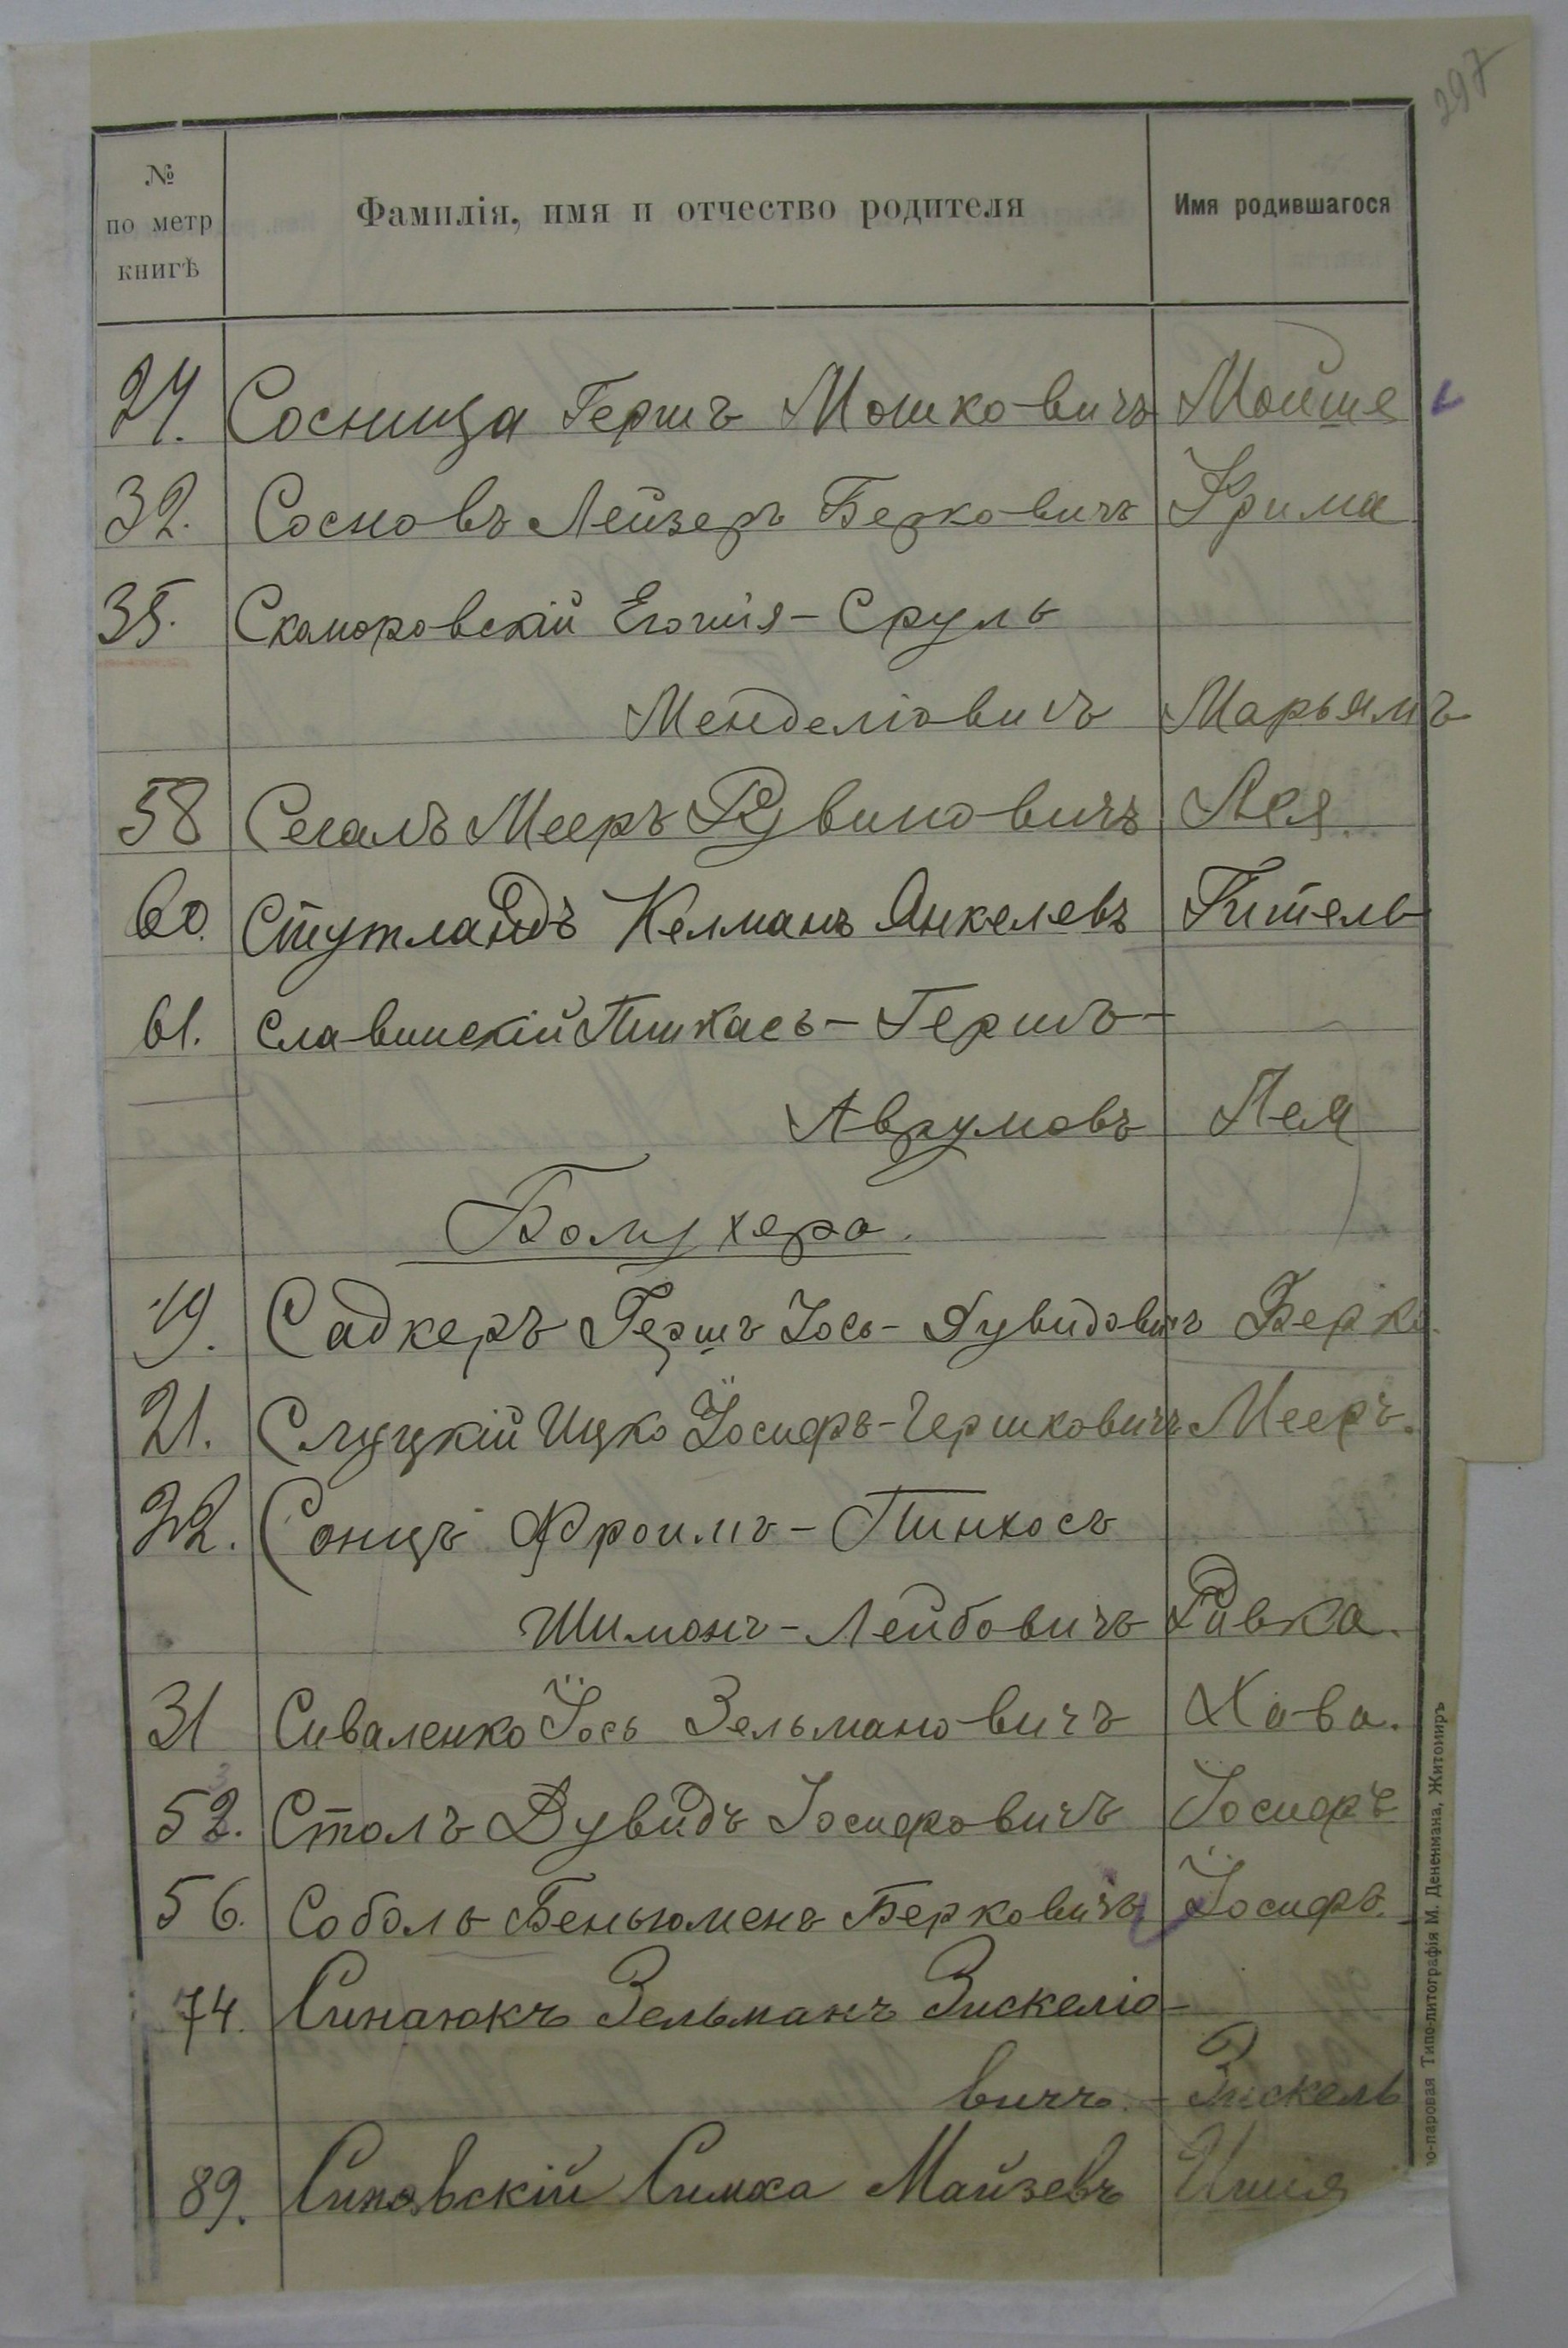 297
№ по метр книгѣ Фамилія, имя и отчество родителя Имя родившагося
24. Сосница Гершъ Мошковичъ Мойше
32. Сосновъ Лейзеръ Берковичъ Фрима
35. Скоморовскій Егошія-Сруль
Менделіовичъ Марьямъ
58 Сегалъ Мееръ Рувиновичъ Лея.
60. Стутландъ Келманъ Янкелевъ Гитель
61. Славинскій Пинхасъ-Гершъ-
Аврумовъ Лея
19. Садкеръ Гершъ Iось-Дувидовичъ Берко.
21. Слуцкій Ицко Iосифъ-Гершковичъ Мееръ.
22. Сонцъ Фроимъ-Пинхосъ
Шимонъ-Лейбовичъ Ривка.
31 Сиваленко Iось Зельмановичъ Хава.
52. Столъ Дувидъ Iосифовичъ Iосифъ
56. Соболь Беньюменъ Берковичъ Iосифъ.
74. Синаюкъ Зельманъ Зискеліо-
вичъ. - Зискель
89. Симха Майзевъ
о-паровая Типо-литографія М. Дененмана, Житоміръ